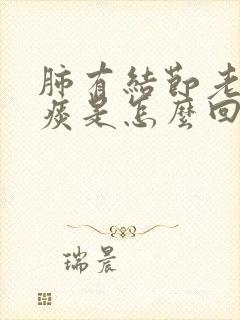 肺有結節老
痰是怎麼回
瑞晨